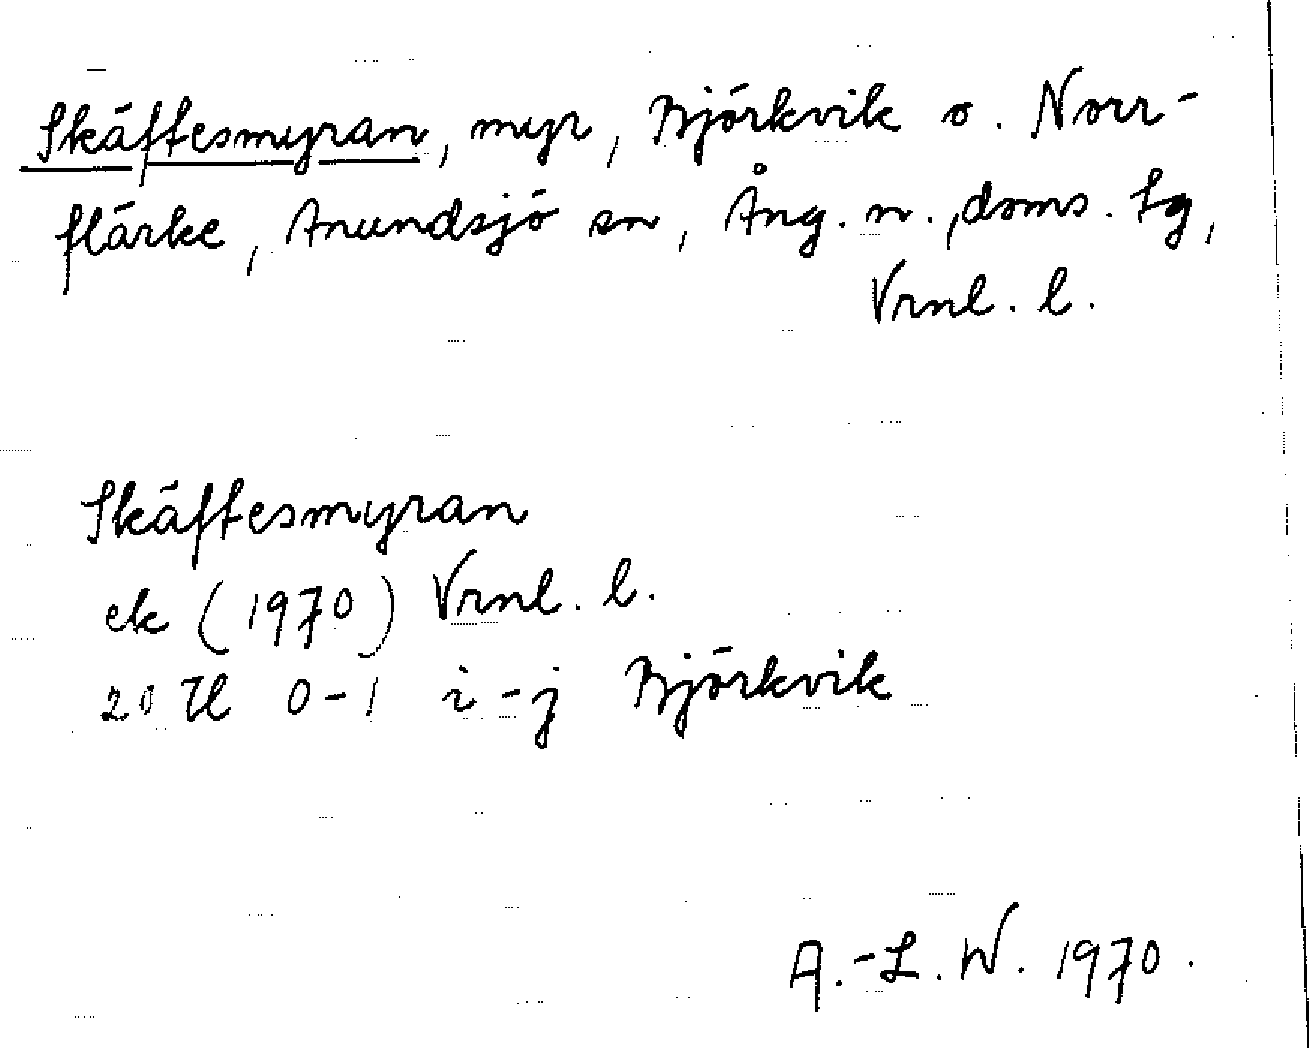 Skäftesmyran, myr, Björkvik o. Norr-
flärke, Anundsjö sn, Ång. n., doms. Lg,
Vrnl. l.
Skäftesmyran
ek (1970) Vrnl. l.
20 Il 0-1 i-j Björkvik
A.-L. W. 1970.